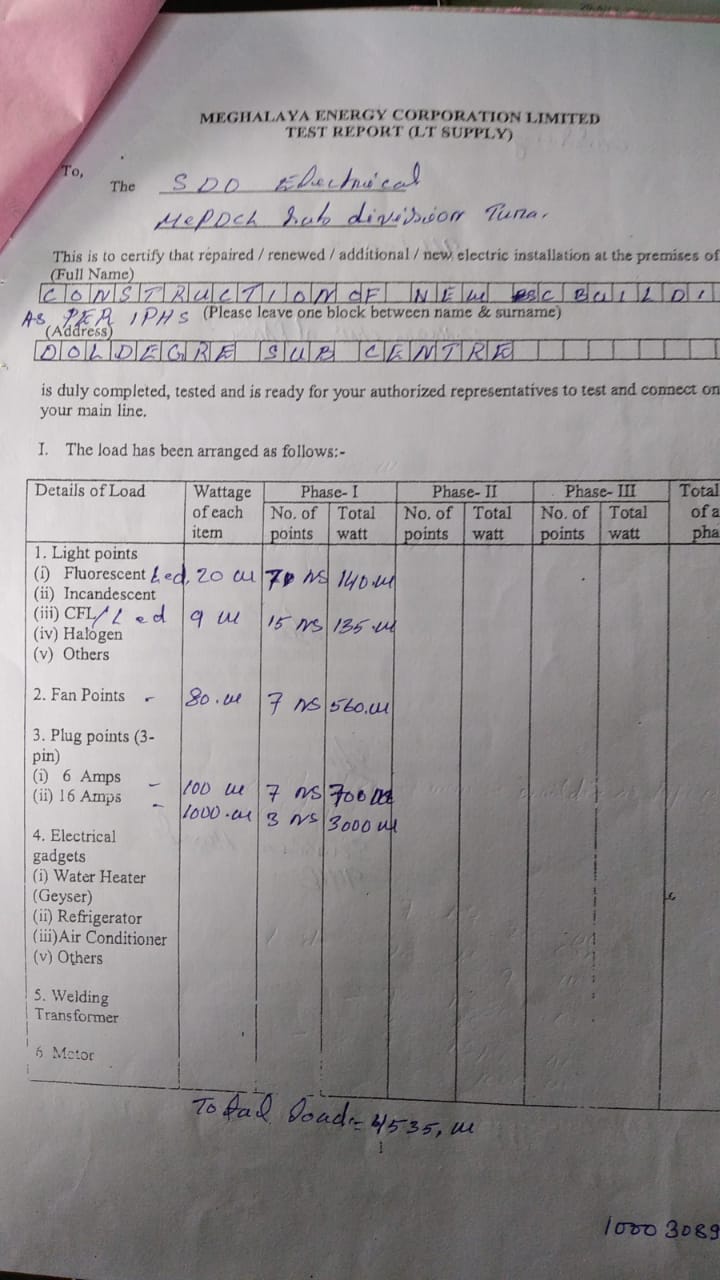 MEGHALAYA ENERGY CORPORATION LIMITED
TEST REPORT (LT SUPPLY)
To,
The SDO Electrical
MePDCL Sub division Tura.
This is to certify that repaired / renewed / additional / new electric installation at the premises of
(Full Name)
CONSTRUCTION OF NEW SC BUILDI
AS PER IPHS (Please leave one block between name & surname)
(Address)
DOLDEGRE SUB CENTRE
is duly completed, tested and is ready for your authorized representatives to test and connect on
your main line.
I. The load has been arranged as follows:-
Details of Load Wattage of each item Phase- I Phase- II Phase- III Total of a pha
No. of points Total watt No. of points Total watt No. of points Total watt
1. Light points
(i) Fluorescent Led, 20 W 7 NS 140.W
(ii) Incandescent
(iii) CFL/Led 9 W 15 NS 135.W
(iv) Halogen
(v) Others
2. Fan Points - 80.W 7 NS 560.W
3. Plug points (3-
pin)
(i) 6 Amps - 100 W 7 NS 700 W
(ii) 16 Amps - 1000.W 3 NS 3000 W
4. Electrical
gadgets
(i) Water Heater
(Geyser)
(ii) Refrigerator
(iii)Air Conditioner
(v) Others
5. Welding
Transformer
6 Motor
Total load:- 4535, W
1000 3089